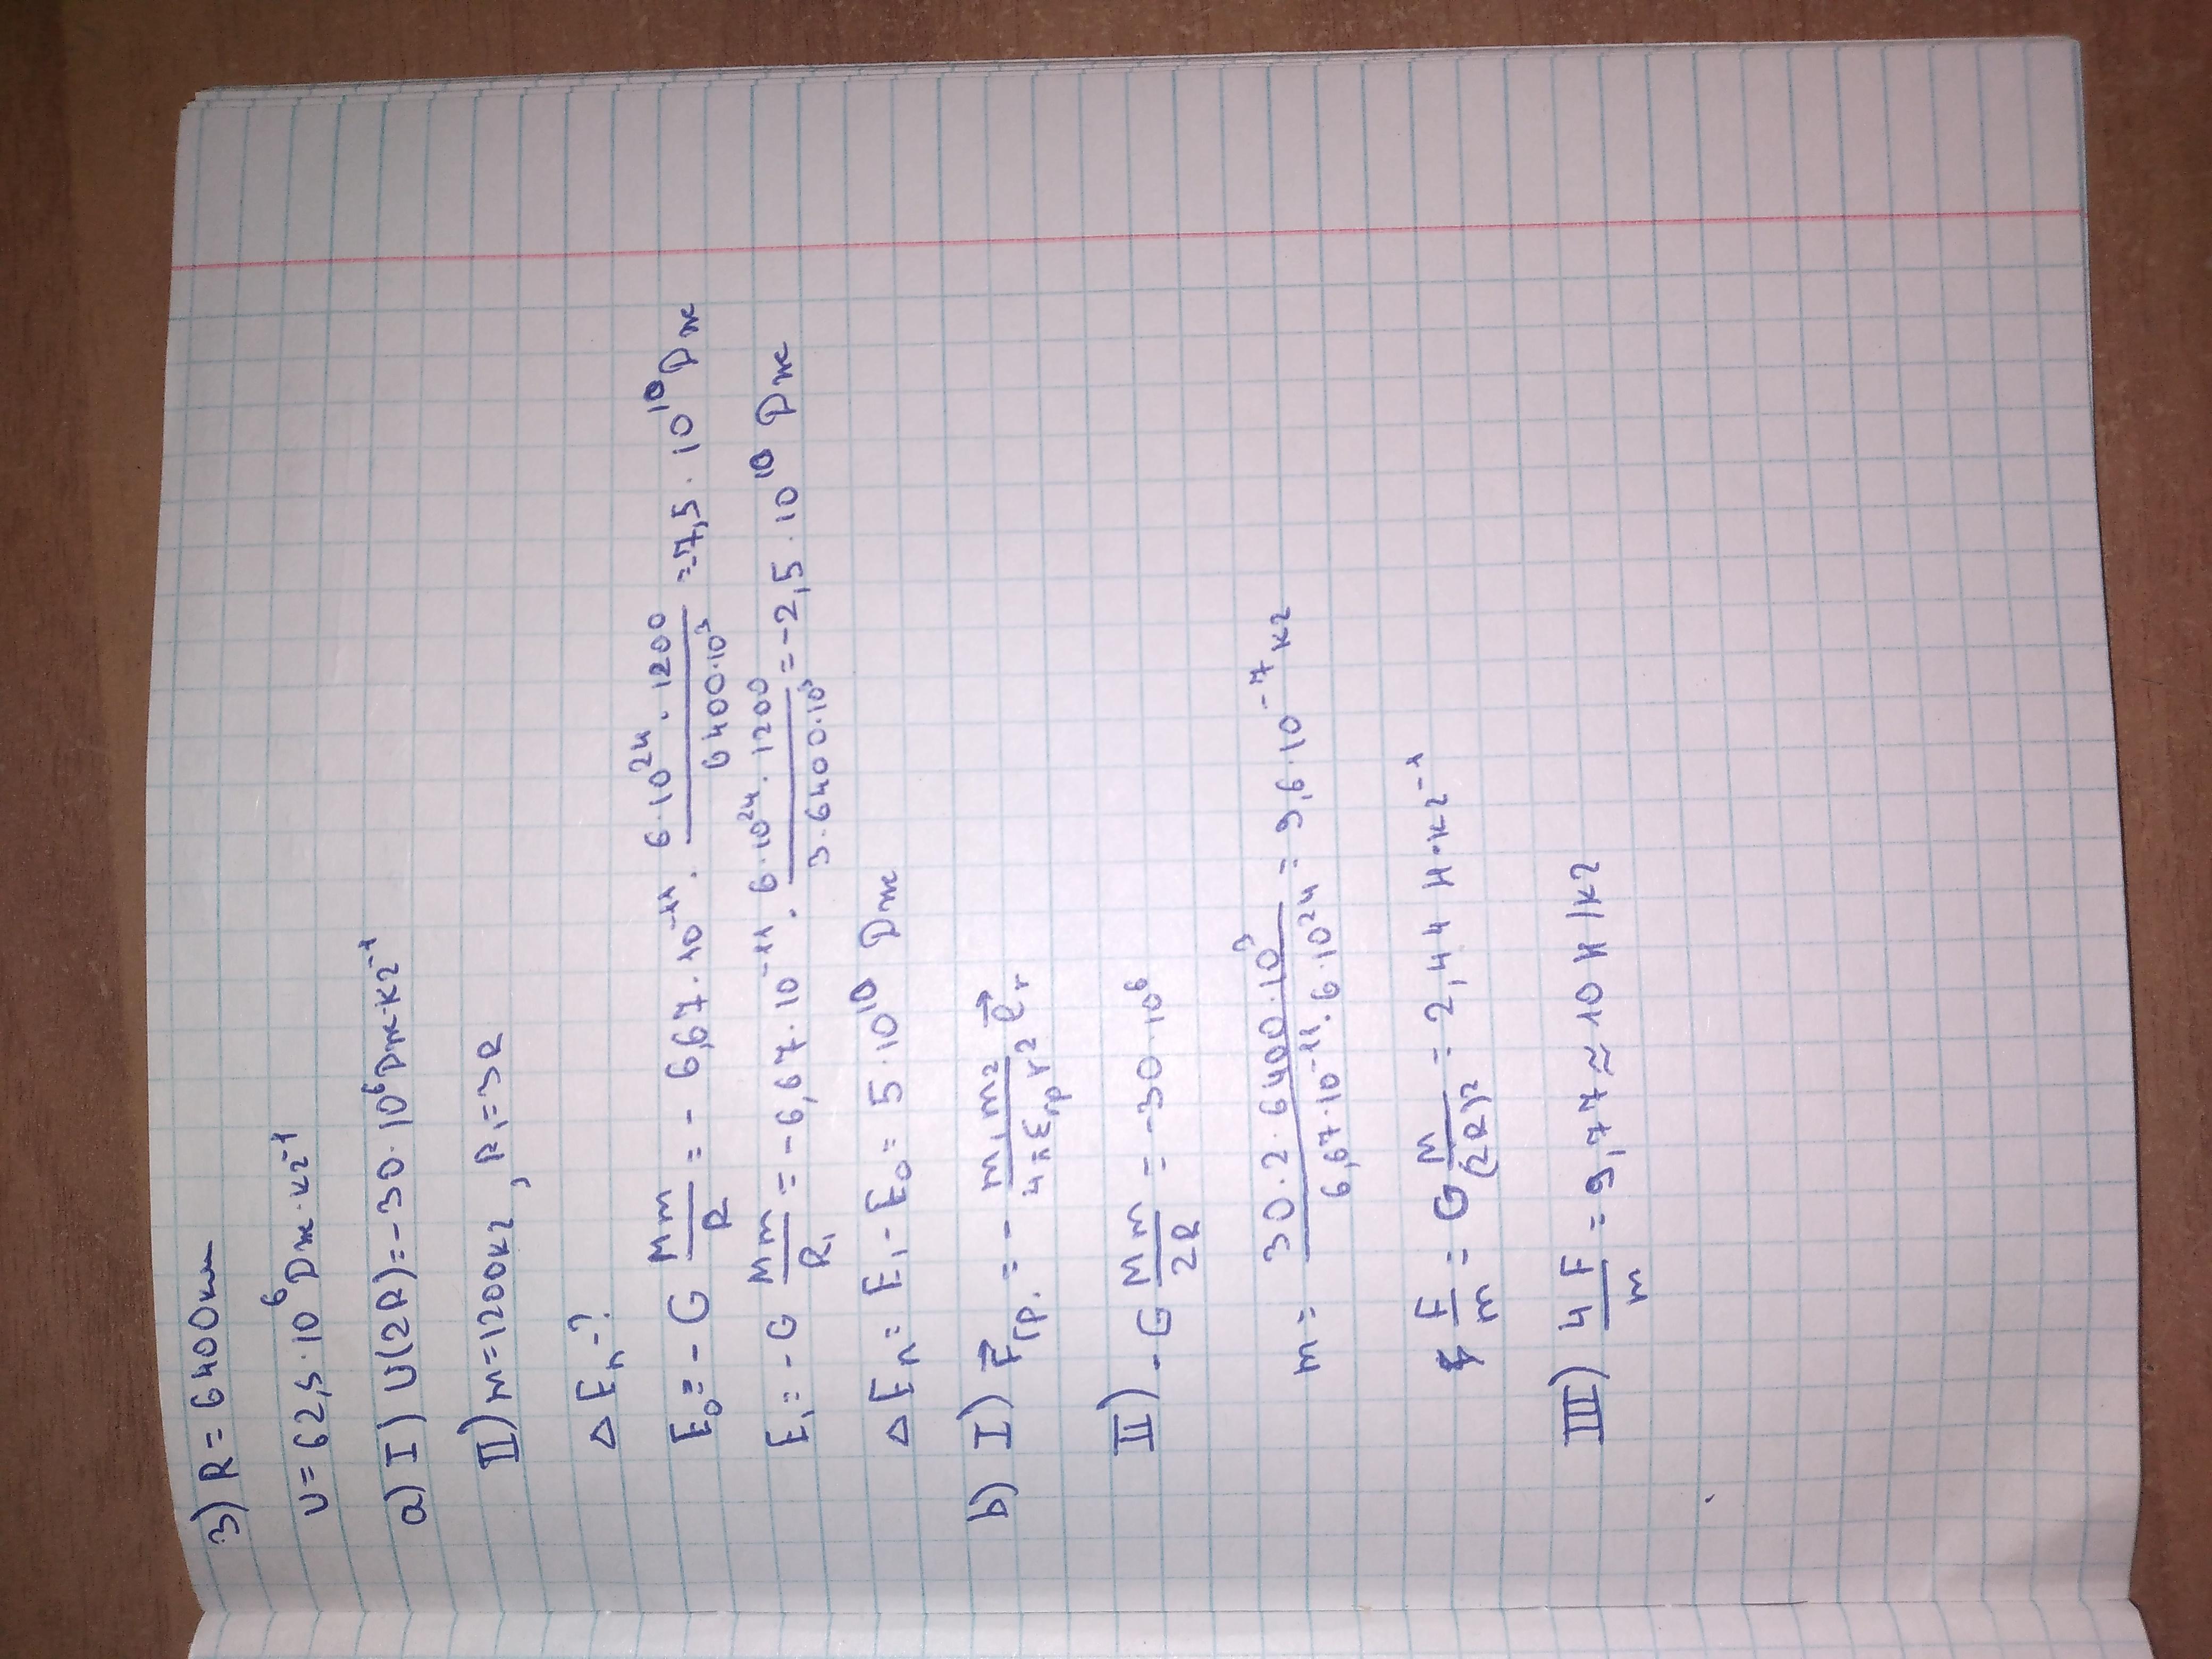 3) R = 6400км
U = 62,5 · 10⁶ Дж · кг⁻¹
а) I) U(2R) = -30 · 10⁶ Дж · кг⁻¹
II) m = 1200кг, R₁ = 3R
ΔEп - ?
E₀ = - G Mm/R = - 6,67 · 10⁻¹¹ · 6 · 10²⁴ · 1200/6400 · 10³ = 7,5 · 10¹⁰ Дж
E₁ = - G Mm/R₁ = - 6,67 · 10⁻¹¹ · 6 · 10²⁴ · 1200/3 · 6400 · 10³ = -2,5 · 10¹⁰ Дж
ΔEп = E₁ - E₀ = 5 · 10¹⁰ Дж
b) I) F⃗гр. = - m₁m₂/4πεгр r² e⃗r
II) - G Mm/2R = -30 · 10⁶
m = 30 · 2 · 6400 · 10⁹/6,67 · 10⁻¹¹ · 6 · 10²⁴ = 9,6 · 10⁻⁷ кг
F/m = G M/(2R)² = 2,44 Н · кг⁻¹
III) 4F/m = 9,77 ≈ 10 Н/кг